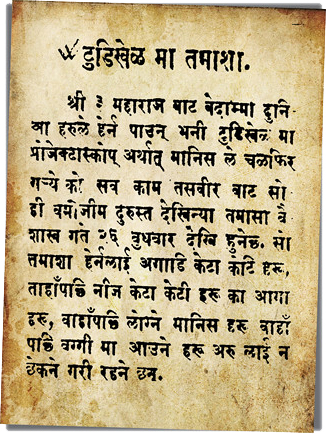 टुडिखेल मा तमाशा.
श्री ३ महाराज बाट बेदाम्मा दुनि-
ञा हरुले हेर्न पाउन् भनी टुडिखेल मा
प्रोजेक्टास्कोप् अर्थात् मानिस ले चलफिर
गर्ने को सव काम तसवीर बाट सो
ही वमोजीम दुरुस्त देखिन्या तमासा वै
शाख गते २६ वुधवार देखि हुनेछ. सो
तमाशा हेर्नलाई अगाडि केटा केटि हरू,
ताहाँपछि नीज केटा केटी हरू का आमा
हरू, वाहाँपछि लोग्ने मानिस हरू वाहाँ
पाछि वग्गी मा आउने हरू अरु लाई न
छेकने गरी रहने छन्.